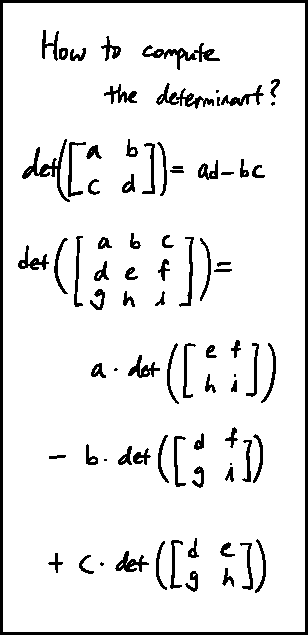 How to compute
the determinant?
det([a b
c d]) = ad-bc
det([a b c
d e f
g h i]) =
a · det([e f
h i])
- b · det([d f
g i])
+ c · det([d e
g h])